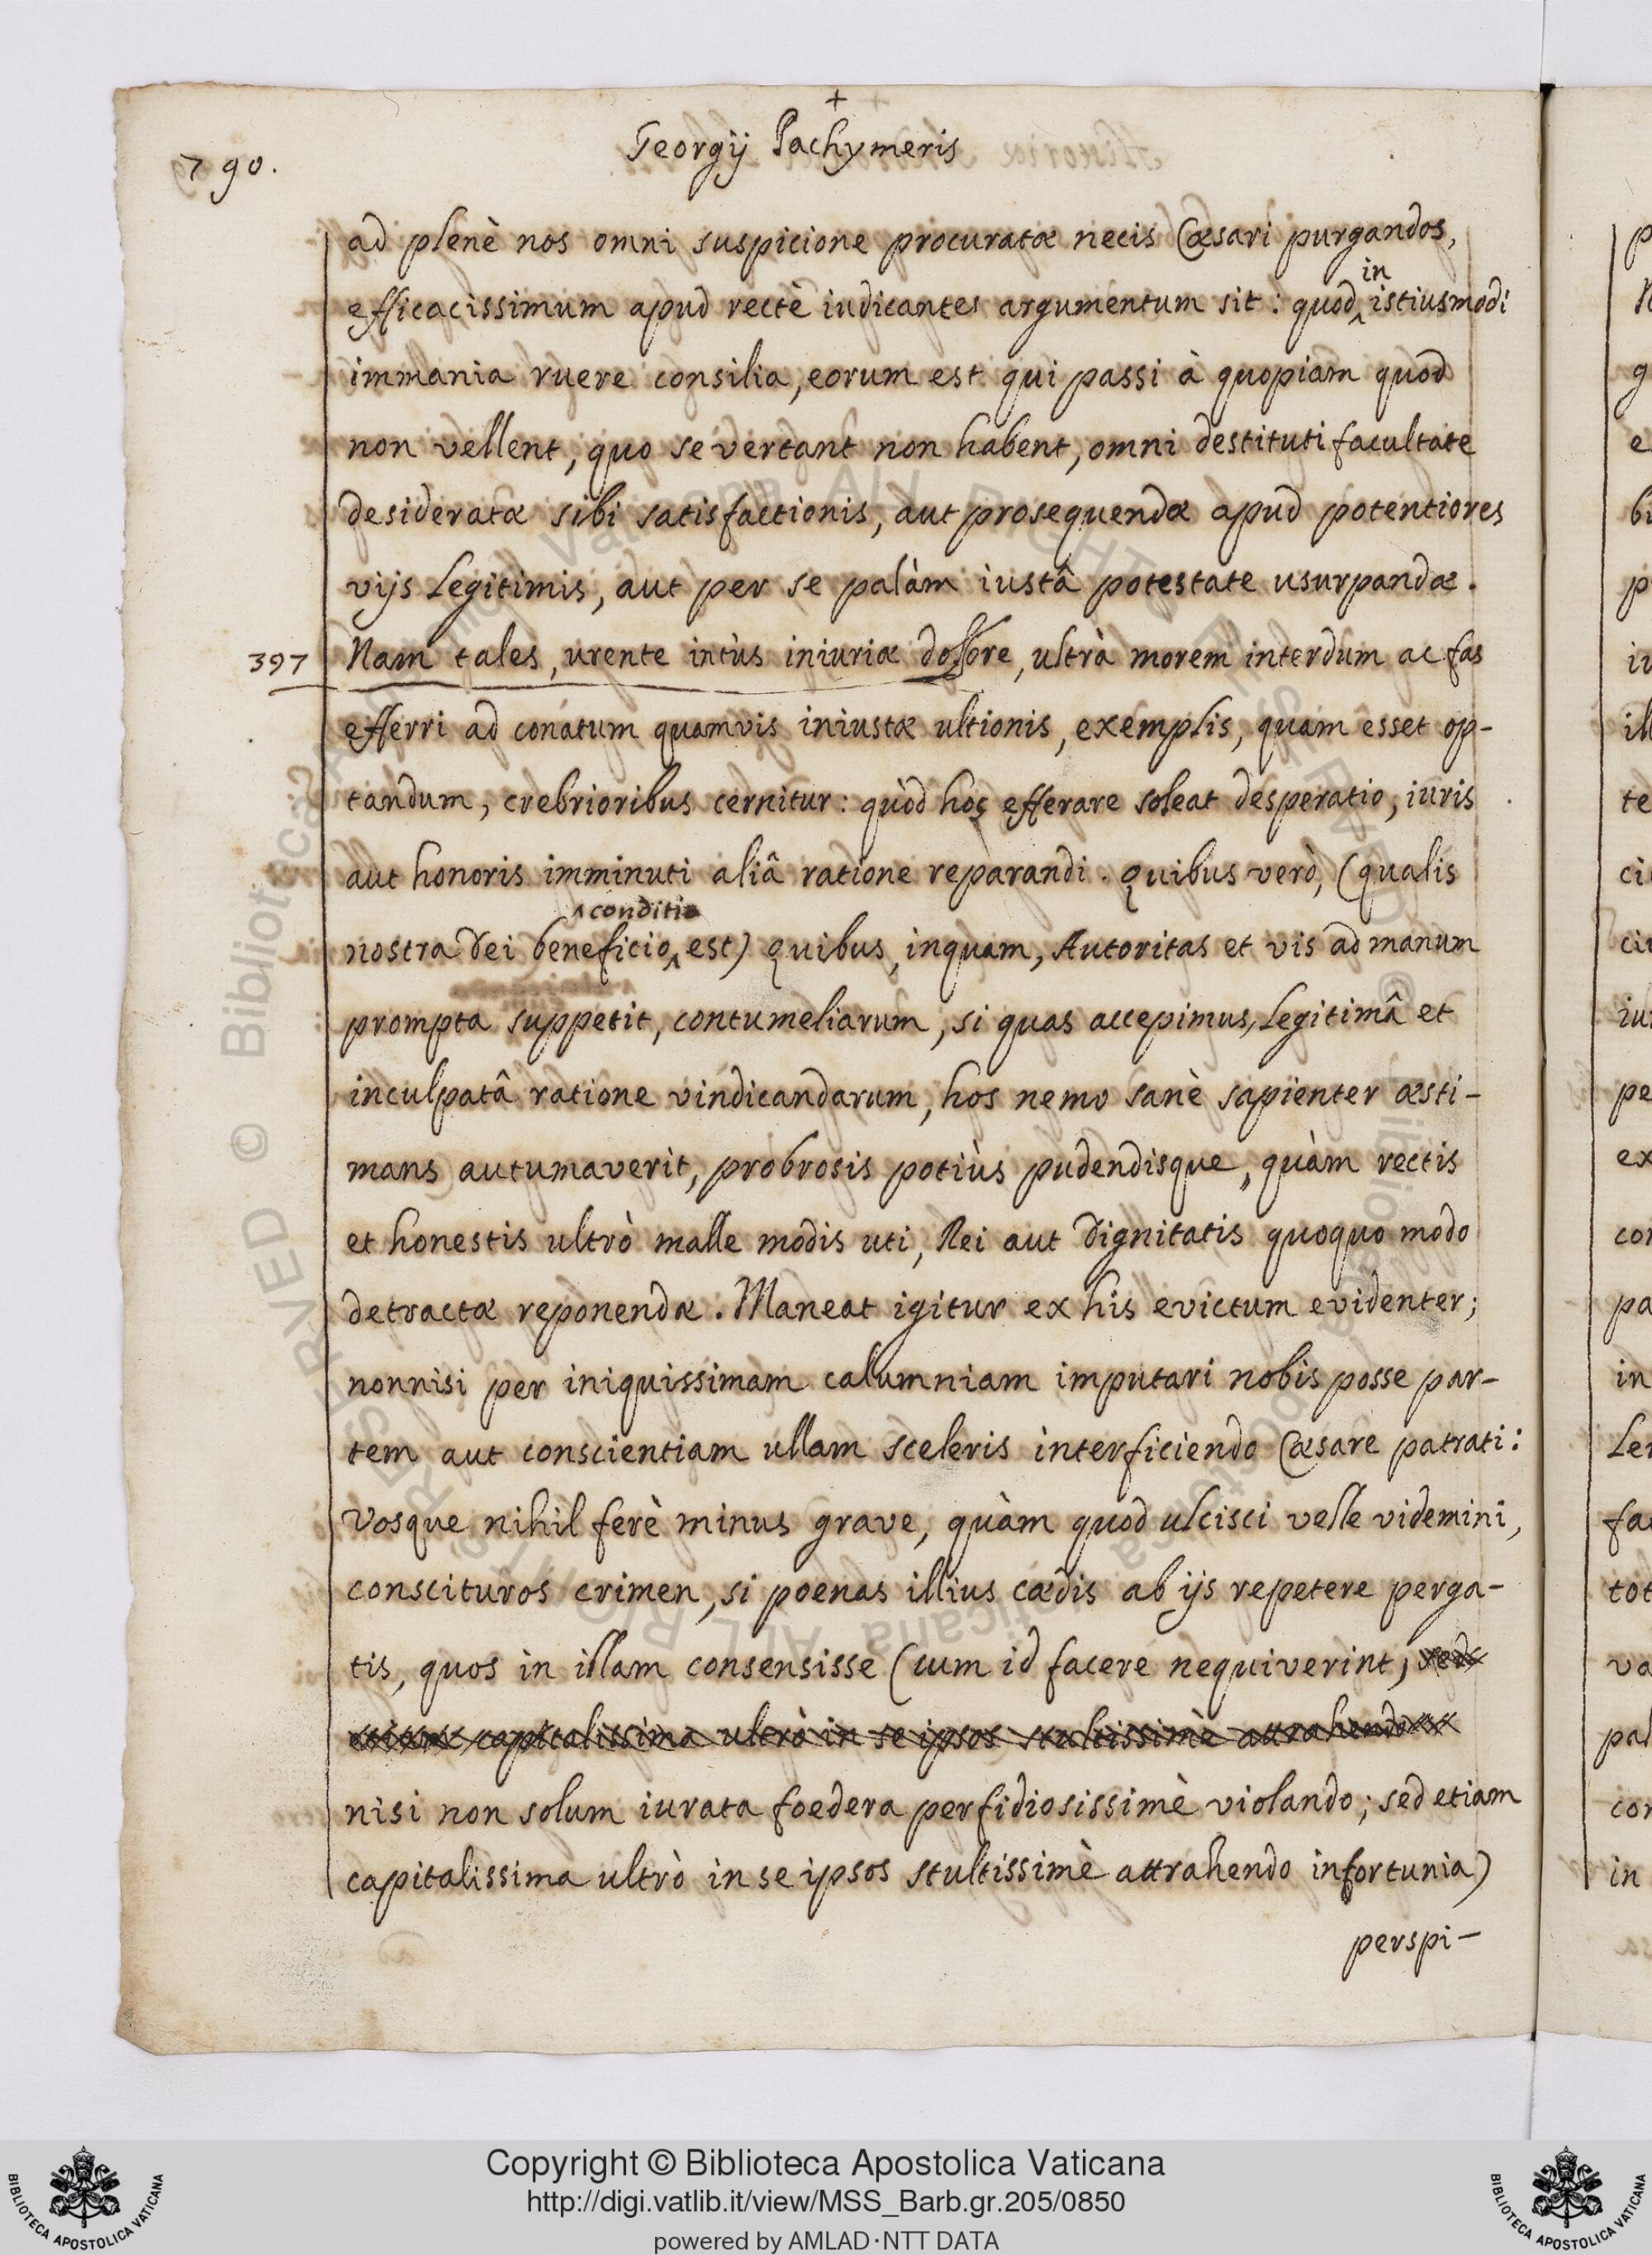 +
790.
Georgij Pachymeris
ad plenè nos omni suspicione procuratæ necis Cæsari purgandos,
efficacissimum apud rectè iudicantes argumentum sit: quod ^in istiusmodi
immania ruere consilia, eorum est qui passi à quopiam quod
non vellent, quo se vertant non habent, omni destituti facultate
desideratæ sibi satisfactionis, aut prosequendæ apud potentiores
vijs legitimis, aut per se palàm iustâ potestate usurpandæ.
397 Nam tales, urente intùs iniuriæ dolore, ultrà morem interdum ac fas
efferri ad conatum quamvis iniustæ ultionis, exemplis, quam esset op-
tandum, crebrioribus cernitur: quòd hos efferare soleat desperatio, iuris
aut honoris imminuti aliâ ratione reparandi. Quibus verò, (qualis
nostra Dei beneficio ^conditio est) quibus, inquam, Autoritas et vis ad manum
prompta suppetit, contumeliarum, si quas accepimus, legitimâ et
inculpatâ ratione vindicandarum, hos nemo sanè sapienter æsti-
mans autumaverit, probrosis potiùs pudendisque, quàm rectis
et honestis ultrò malle modis uti, Rei aut Dignitatis quoquo modo
detractæ reponendæ. Maneat igitur ex his evictum evidenter;
nonnisi per iniquissimam calumniam imputari nobis posse par-
tem aut conscientiam ullam sceleris interficiendo Cæsare patrati:
Vosque nihil ferè minus grave, quàm quod ulcisci velle videmini,
conscituros crimen, si poenas illius cædis ab ijs repetere perga-
tis, quos in illam consensisse (cum id facere nequiverint, sed
etiam capitalissima ultrò in se ipsos stultissimè attrahendo
nisi non solum iurata foedera perfidiosissimè violando; sed etiam
capitalissima ultrò in se ipsos stultissimè attrahendo infortunia)
perspi-
Copyright © Biblioteca Apostolica Vaticana
http://digi.vatlib.it/view/MSS_Barb.gr.205/0850
powered by AMLAD·NTT DATA
BIBLIOTECA APOSTOLICA VATICANA
BIBLIOTECA APOSTOLICA VATICANA